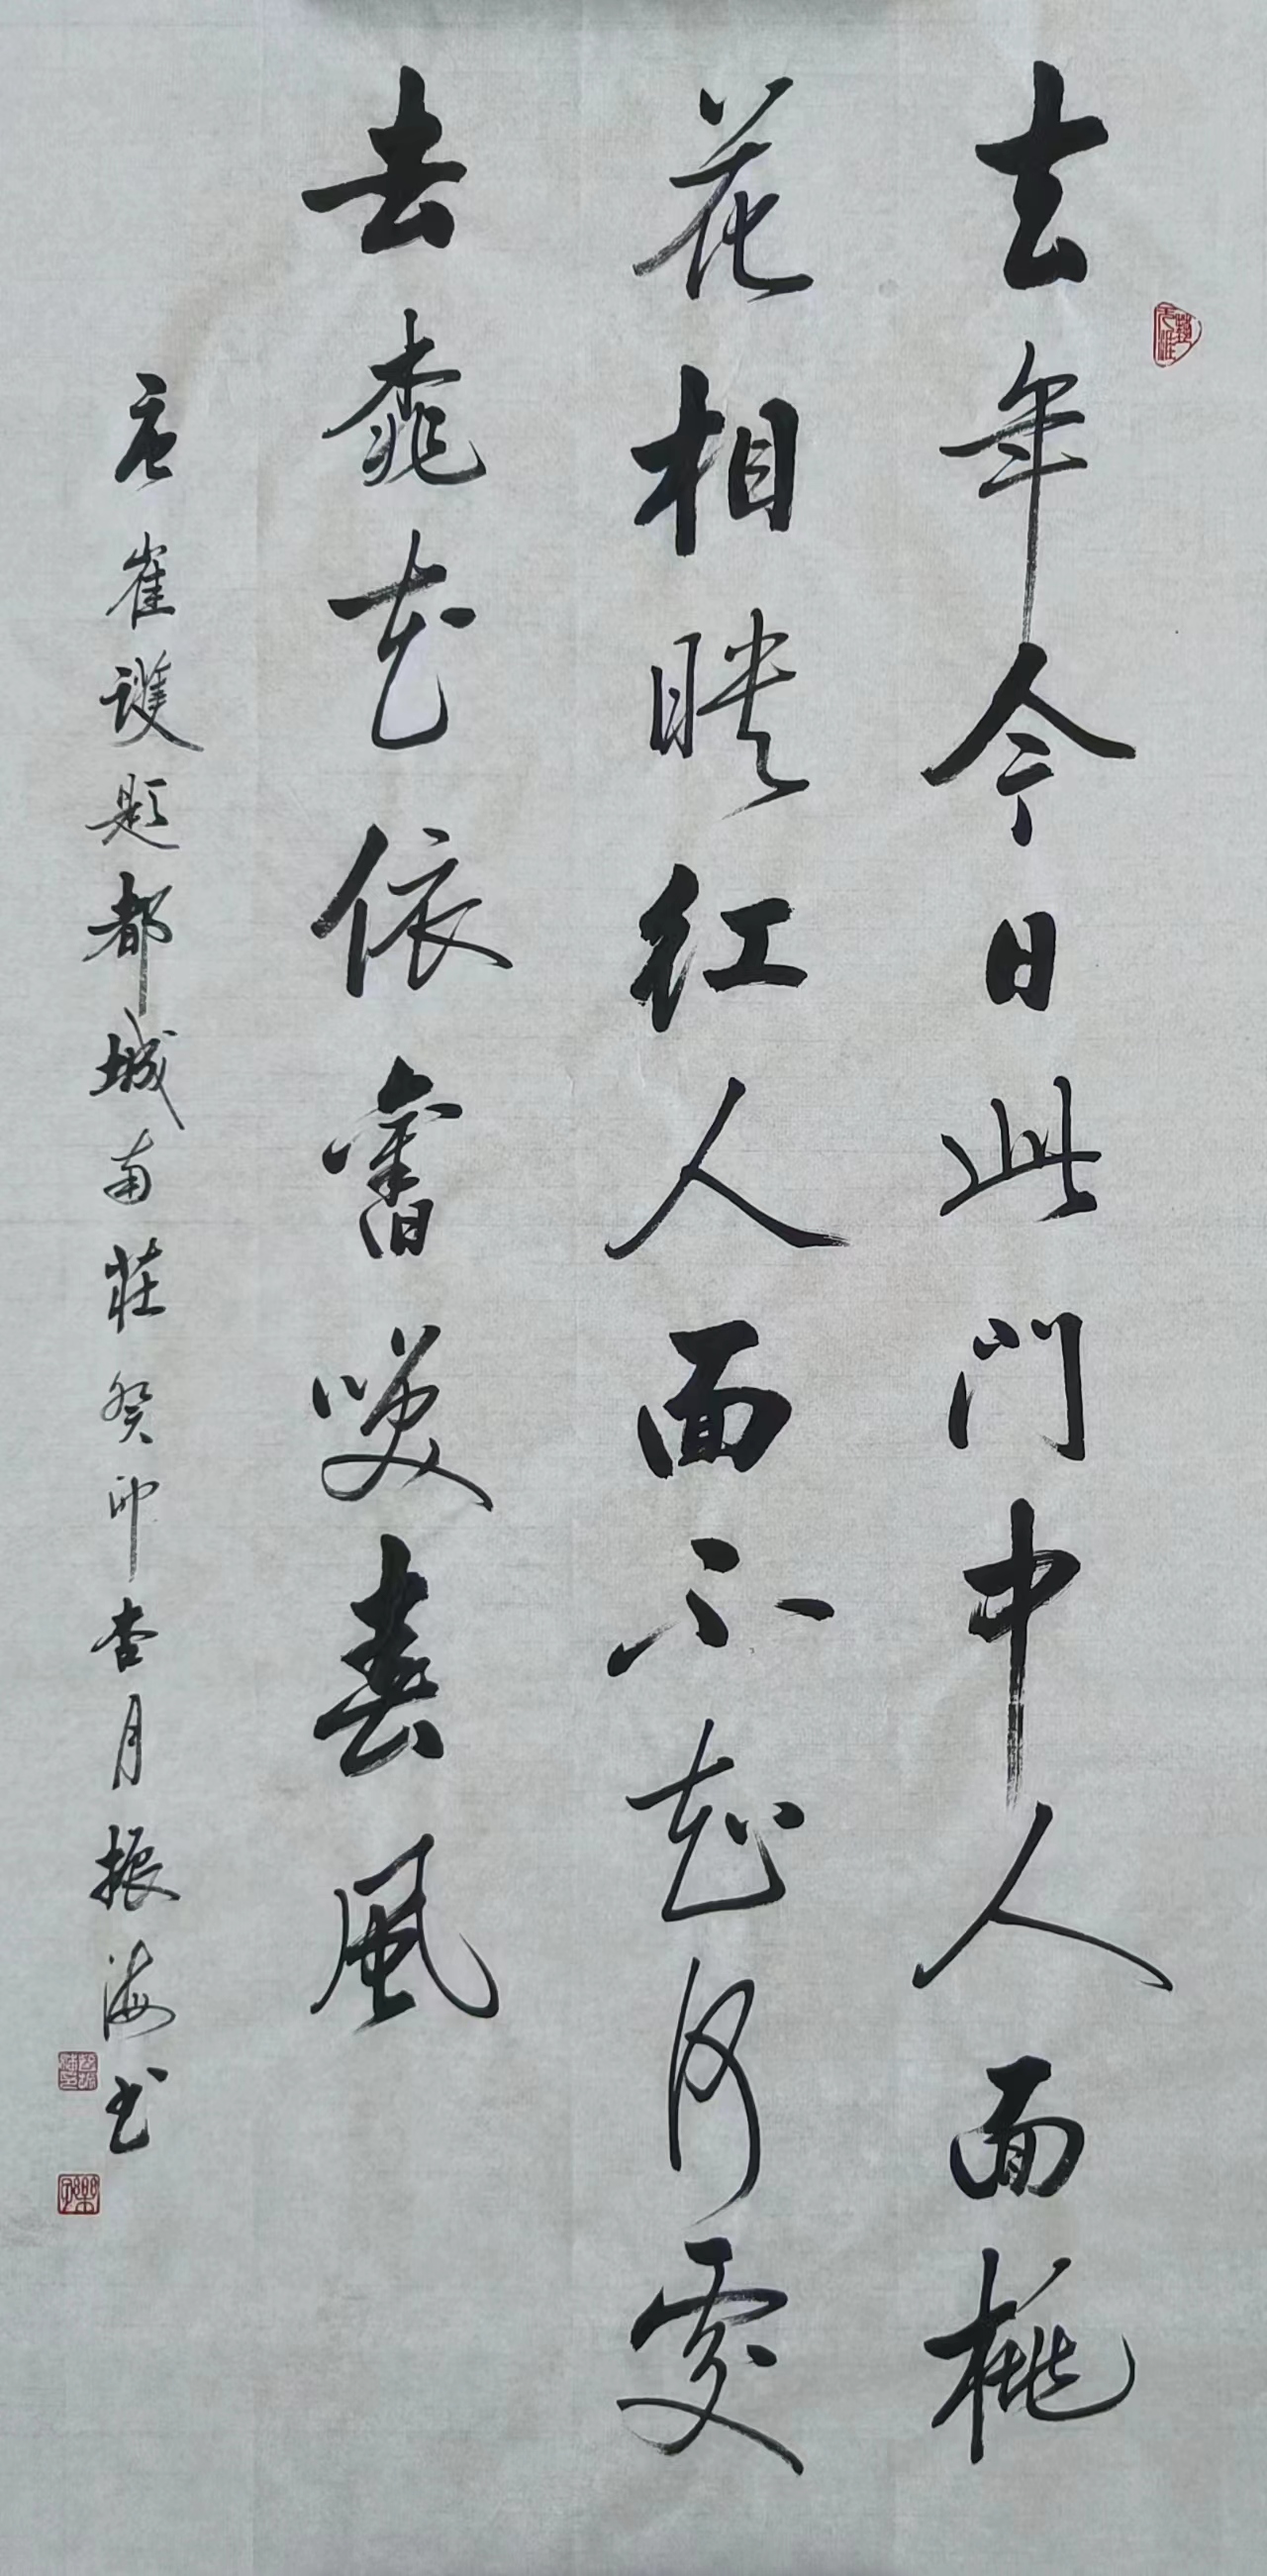 去年今日此門中人面桃
花相映紅人面不知何處
去桃花依舊笑春風
唐崔護題都城南莊癸卯杏月振海書